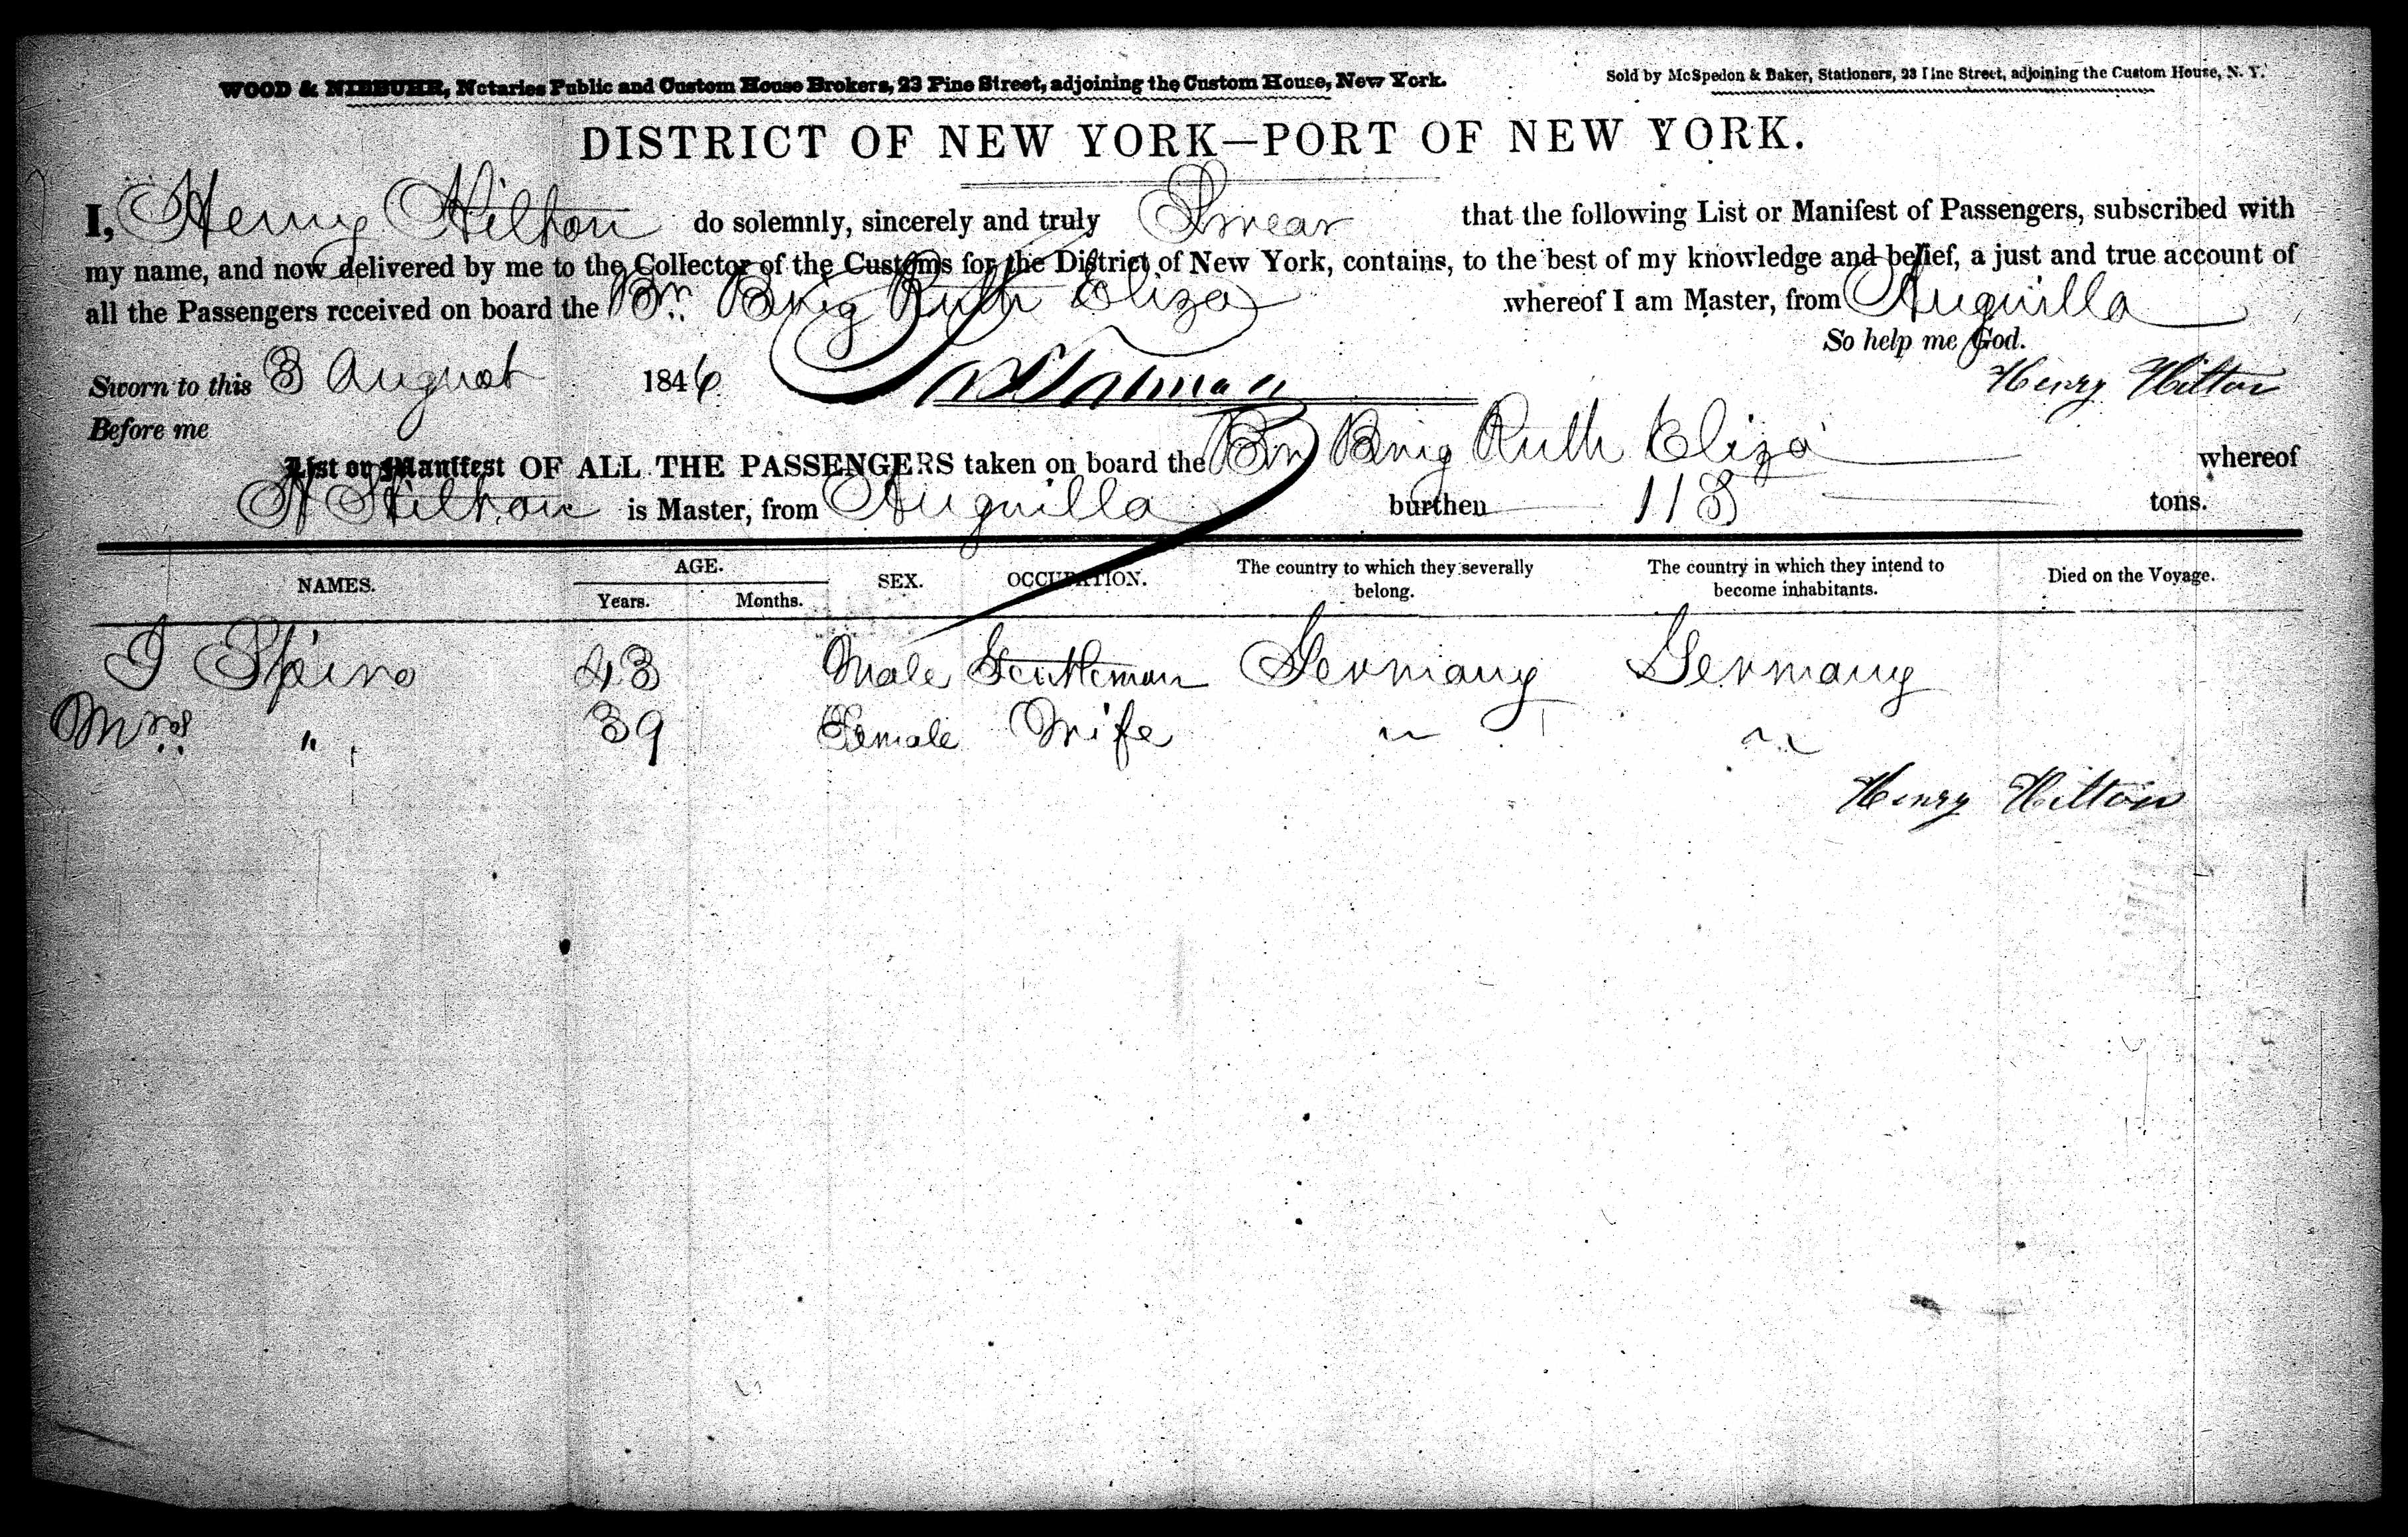 WOOD & NIEBUHR, Notaries Public and Custom House Brokers, 23 Pine Street, adjoining the Custom House, New York.
Sold by McSpedon & Baker, Stationers, 23 Pine Street, adjoining the Custom House, N. Y.
DISTRICT OF NEW YORK—PORT OF NEW YORK.
I, Henry Hilton do solemnly, sincerely and truly Swear that the following List or Manifest of Passengers, subscribed with
my name, and now delivered by me to the Collector of the Customs for the District of New York, contains, to the best of my knowledge and belief, a just and true account of
all the Passengers received on board the Br. Brig Ruth Eliza whereof I am Master, from Anguilla
So help me God.
Sworn to this 3 August 1846 Henry Hilton
Before me
List or Manifest OF ALL THE PASSENGERS taken on board the Br Brig Ruth Eliza whereof
H Hilton is Master, from Anguilla burthen 118 tons.
NAMES. AGE. Years. Months. SEX. OCCUPATION. The country to which they severally belong. The country in which they intend to become inhabitants. Died on the Voyage.
I Spiro 43 Male Gentleman Germany Germany
Mrs " 39 Female Wife " "
Henry Hilton